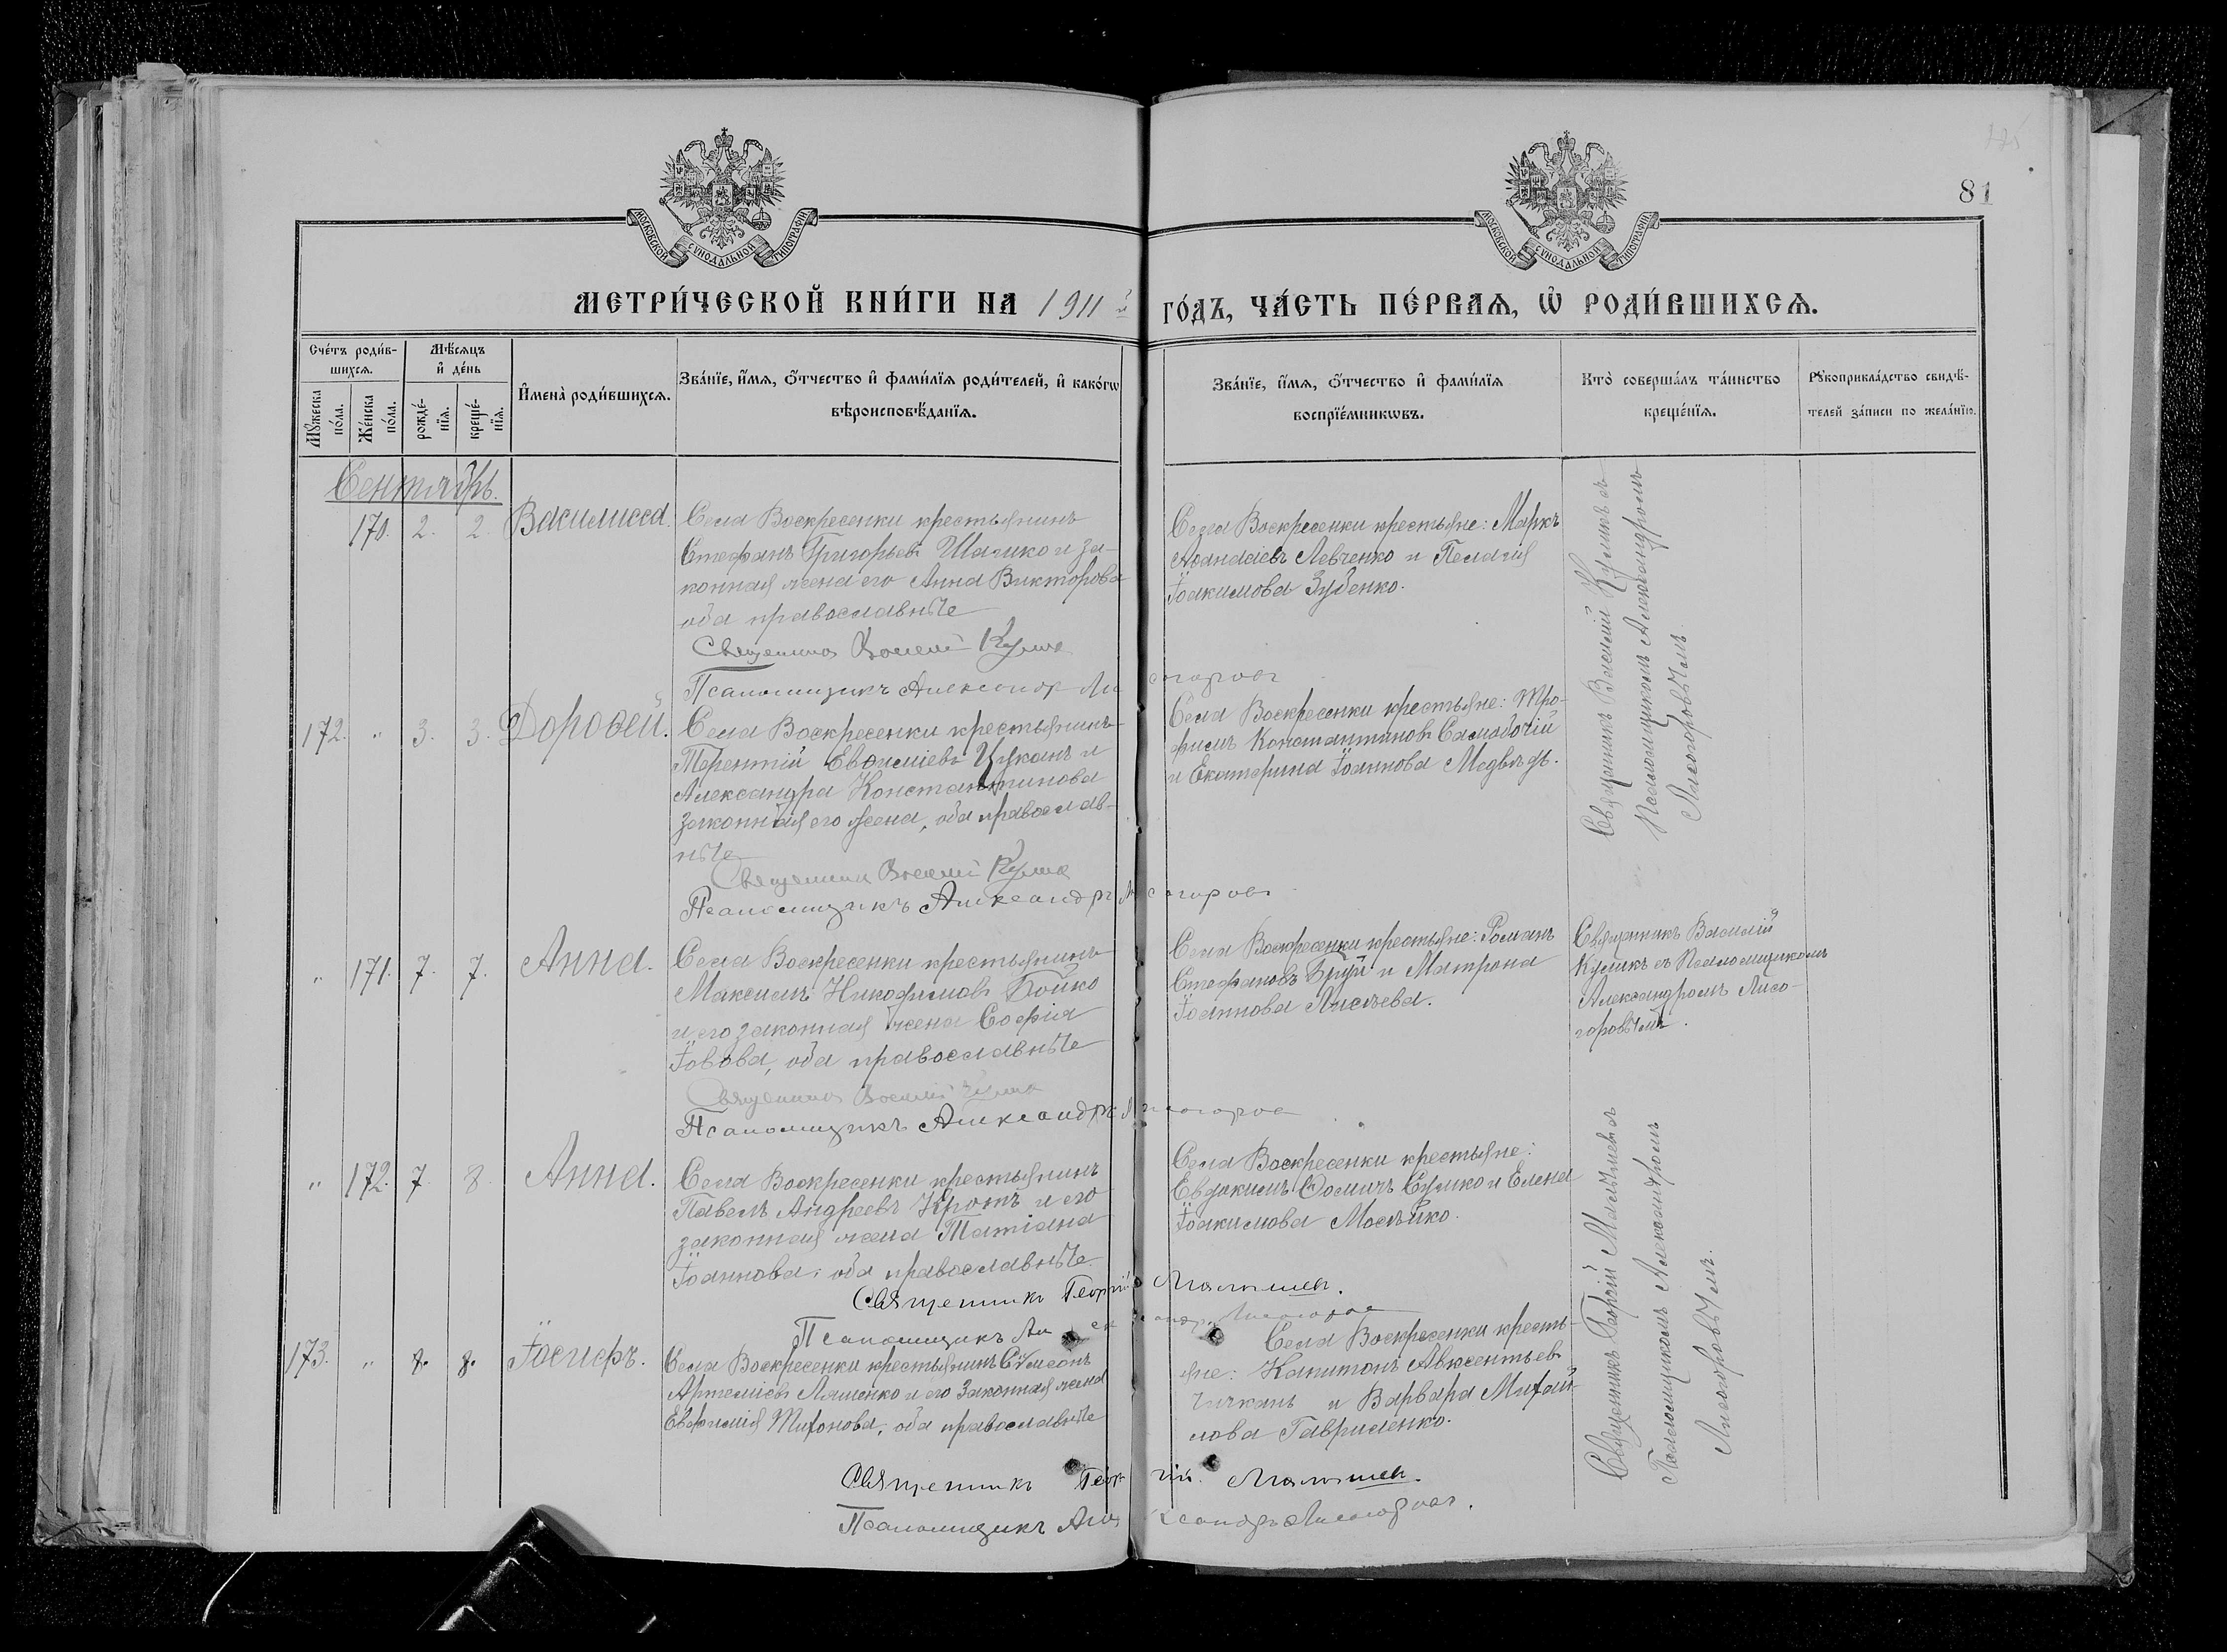 125
81
МОСКОВСКОЙ СѴНОДАЛЬНОЙ ТИПОГРАФІИ
МОСКОВСКОЙ СѴНОДАЛЬНОЙ ТИПОГРАФІИ
МЕТРИ́ЧЕСКОЙ КНИ́ГИ НА 1911й ГО́ДЪ, ЧА́СТЬ ПЕ́РВАѦ, Ѽ РОДИ́ВШИХСѦ.
Сче́тъ роди́в-
шихсѧ.
Мꙋ́жеска по́ла.
Же́нска по́ла.
Мѣ́сѧцъ
и҆ де́нь
рожде́-
нїѧ.
креще́-
нїѧ.
И҆мена̀ роди́вшихсѧ.
Зва́нїе, и҆́мѧ, ѻ҆́тчество и҆ фами́лїѧ роди́телей, и҆ како́гѡ
вѣроисповѣ́данїѧ.
Зва́нїе, и҆́мѧ, ѻ҆́тчество и҆ фами́лїѧ
воспрїе́мникѡвъ.
Кто̀ соверша́лъ та́инство
креще́нїѧ.
Рꙋкоприкла́дство свидѣ́-
телей за́писи по жела́нїю.
Сентябрь.
170. 2. 2. Василисса.
Села Воскресенки крестьянинъ
Стефанъ Григорьевъ Шалико и за-
конная жена его Анна Викторова
оба православные
Священникъ Василій Куликъ
Псаломщикъ Александръ Лисогоровъ
Села Воскресенки крестьяне: Маркъ
Аѳанасіевъ Левченко и Пелагія
Іоакимова Зубенко.
Священникъ Василій Куликъ съ
Псаломщикомъ Александромъ
Лисогоровымъ
172. " 3. 3. Дороѳей.
Села Воскресенки крестьянинъ
Терентій Евѳиміевъ Цуканъ и
Александра Константинова
законная его жена, оба православ-
ные
Священникъ Василій Куликъ
Псаломщикъ Александръ Лисогоровъ
Села Воскресенки крестьяне: Тро-
фимъ Константиновъ Самободчій
и Екатерина Іоаннова Медвѣдь.
" 171. 7. 7. Анна.
Села Воскресенки крестьянинъ
Максимъ Никофимовъ Бойко
и его законная жена Софія
Іовова, оба православные
Священникъ Василій Куликъ
Псаломщикъ Александръ Лисогоровъ
Села Воскресенки крестьяне: Романъ
Стефановъ Бруй и Матрона
Іоаннова Лисъева.
Священникъ Василій
Куликъ съ Псаломщикомъ
Александромъ Лисо-
горовымъ.
" 172. 7. 8. Анна.
Села Воскресенки крестьянинъ
Павелъ Андреевъ Кротъ и его
законная жена Татіана
Іоаннова, оба православные.
Священникъ Георгій Малышевъ.
Псаломщикъ Александръ Лисогоровъ
Села Воскресенки крестьяне:
Евдокимъ Ѳомичъ Сулико и Елена
Іоакимова Мосъйко.
Священникъ Георгій Малышевъ съ
Псаломщикомъ Александромъ
Лисогоровымъ.
173. " 8. 8. Іосифъ.
Села Воскресенки крестьянинъ Сѵмеонъ
Артеміевъ Ляшенко и его законная жена
Евфимія Тихонова, оба православные
Священникъ Георгій. Малышевъ.
Псаломщикъ Александръ Лисогоровъ.
Села Воскресенки кресть-
яне: Капитонъ Авксентьевъ
Чичканъ и Варвара Михай-
лова Гавриленко.